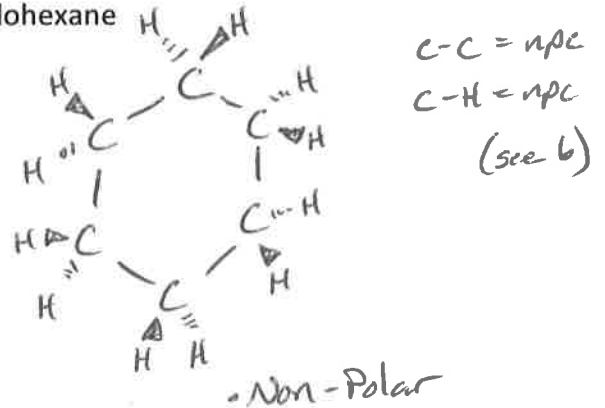 lohexane
H H
H C H
C C H
H
C H
H C
H C H
H H
C-C = npc
C-H = npc
(see 6)
. Non-Polar